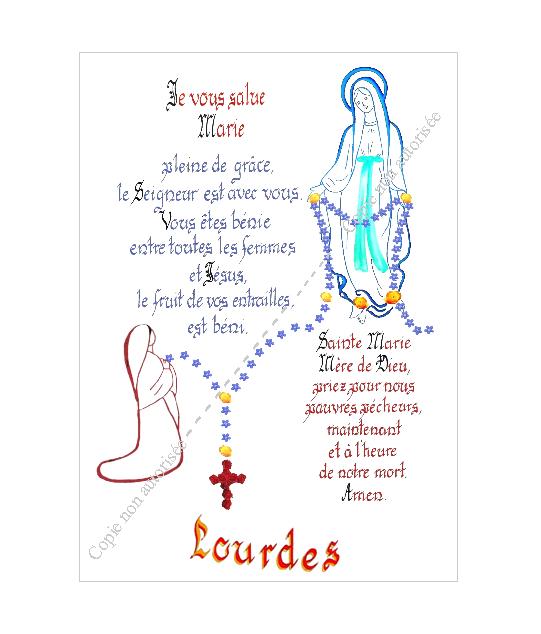 Je vous salue
Marie
pleine de grâce,
le Seigneur est avec vous.
Vous êtes bénie
entre toutes les femmes
et Jésus,
le fruit de vos entrailles,
est béni.
Sainte Marie
Mère de Dieu,
priez pour nous
pauvres pécheurs,
maintenant
et à l'heure
de notre mort.
Amen.
Lourdes
Copie non autorisée
Copie non autorisée